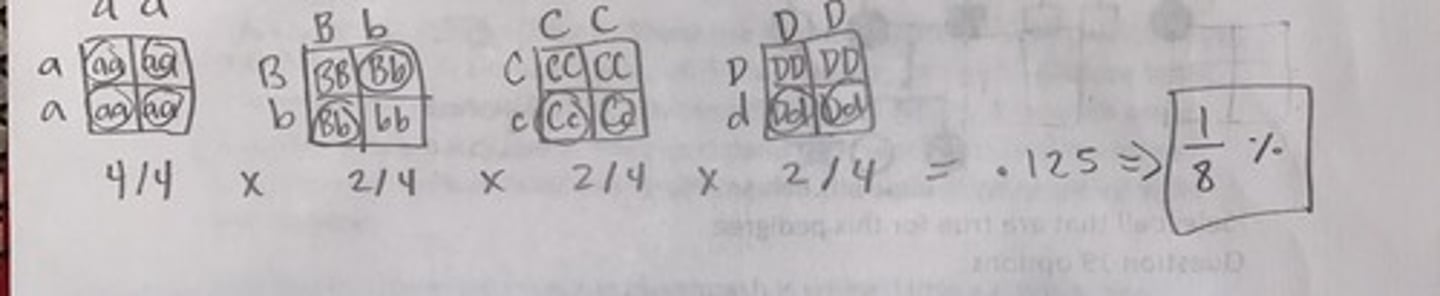 a a B b C C D D
a aa aa B BB Bb C CC CC D DD DD
a aa aa b Bb bb c Cc Cc d Dd Dd
4/4 x 2/4 x 2/4 x 2/4 = .125 => 1/8 %
select all that are true for this pedigree
Question 19 options